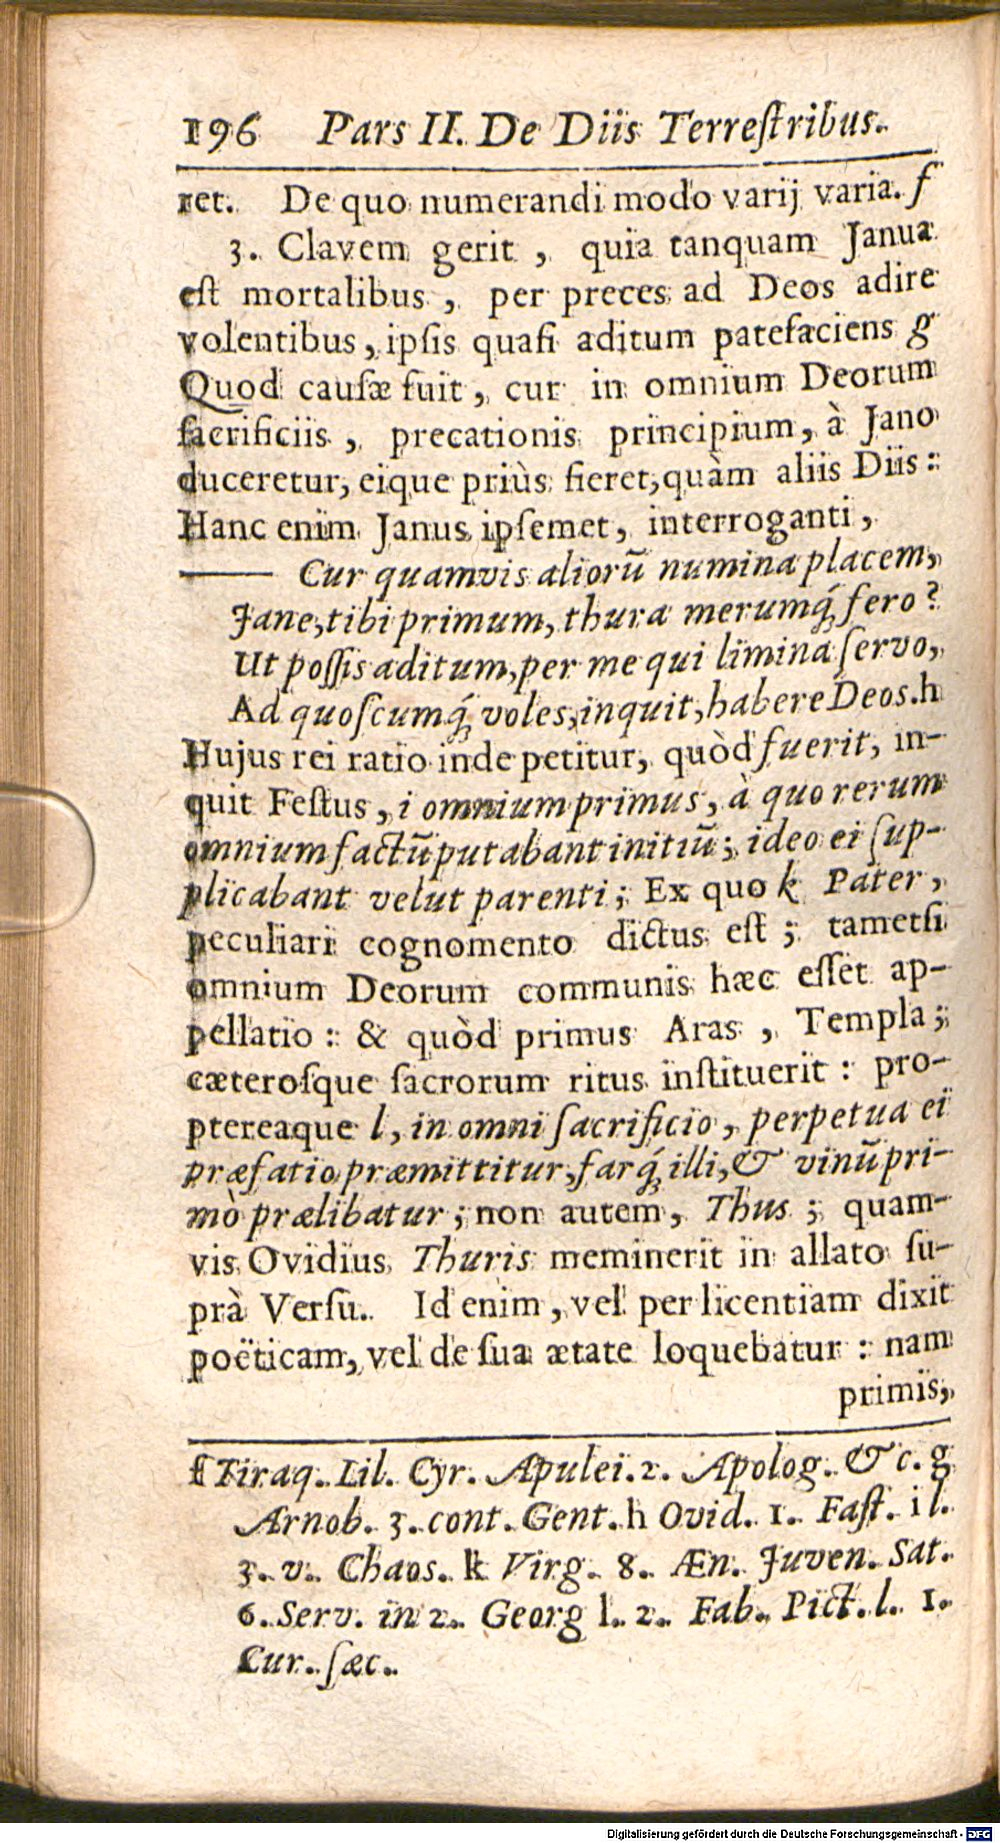 196 Pars II. De Diis Terreſtribus.
ret. De quo numerandi modo varij varia. f
3. Clavem gerit, quia tanquam Janua
eſt mortalibus, per preces ad Deos adire
volentibus, ipſis quaſi aditum patefaciens g
Quod cauſæ fuit, cur in omnium Deorum
ſacrificiis, precationis principium, à Jano
duceretur, eique priùs fieret, quàm aliis Diis:
Hanc enim Janus ipſemet, interroganti,
—— Cur quamvis aliorũ numina placem,
Jane, tibi primum, thura merumq́; fero?
Ut poſſis aditum, per me qui limina ſervo,
Ad quoſcumq́; voles, inquit, habere Deos. h
Hujus rei ratio inde petitur, quòd fuerit, in-
quit Feſtus, i omnium primus, à quo rerum
omnium factũ putabant initiũ; ideo ei ſup-
plicabant velut parenti; Ex quo k Pater,
peculiari cognomento dictus eſt; tametſi
omnium Deorum communis hæc eſſet ap-
pellatio: & quòd primus Aras, Templa;
cæteroſque ſacrorum ritus inſtituerit: pro-
ptereaque l, in omni ſacrificio, perpetua ei
præfatio præmittitur, farq́; illi, & vinũ pri-
mò prælibatur; non autem, Thus; quam-
vis Ovidius Thuris meminerit in allato ſu-
prà Verſu. Id enim, vel per licentiam dixit
poëticam, vel de ſua ætate loquebatur: nam
primis,
f Tiraq. Lil. Cyr. Apulei. 2. Apolog. &c. g
Arnob. 3. cont. Gent. h Ovid. 1. Faſt. i l.
3. v. Chaos. k Virg. 8. Æn. Juven. Sat.
6. Serv. in 2. Georg l. 2. Fab. Pict. l. 1.
Cur. ſæc.
Digitalisierung gefördert durch die Deutsche Forschungsgemeinschaft - DFG